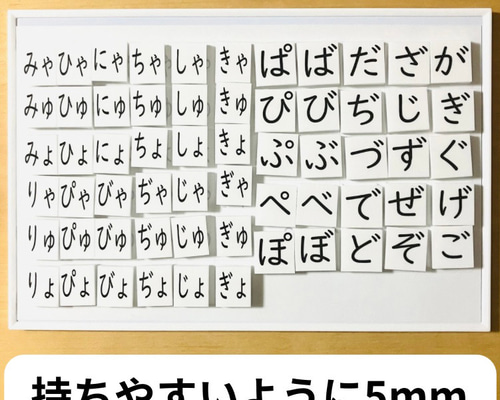 みゃ ひゃ にゃ ちゃ しゃ きゃ ぱ ば だ ざ が
みゅ ひゅ にゅ ちゅ しゅ きゅ ぴ び ぢ じ ぎ
みょ ひょ にょ ちょ しょ きょ ぷ ぶ づ ず ぐ
りゃ ぴゃ びゃ ぢゃ じゃ ぎゃ ぺ べ で ぜ げ
りゅ ぴゅ びゅ ぢゅ じゅ ぎゅ ぽ ぼ ど ぞ ご
りょ ぴょ びょ ぢょ じょ ぎょ
持ちやすいように5mm